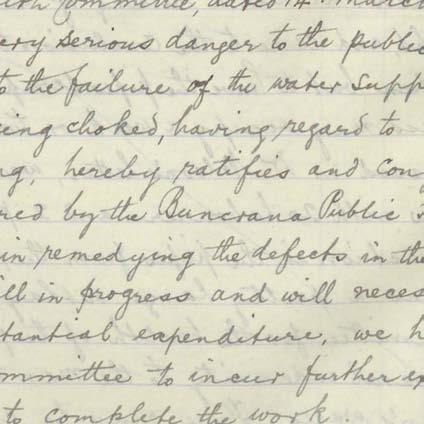 Committee, dated 14th March
very serious danger to the public
to the failure of the water supp
ing choked, having regard to
ng, hereby ratifies and con
red by the Buncrana Public
in remedying the defects in the
ill in progress and will neces
tantial expenditure, we h
ommittee to incur further ex
to complete the work.